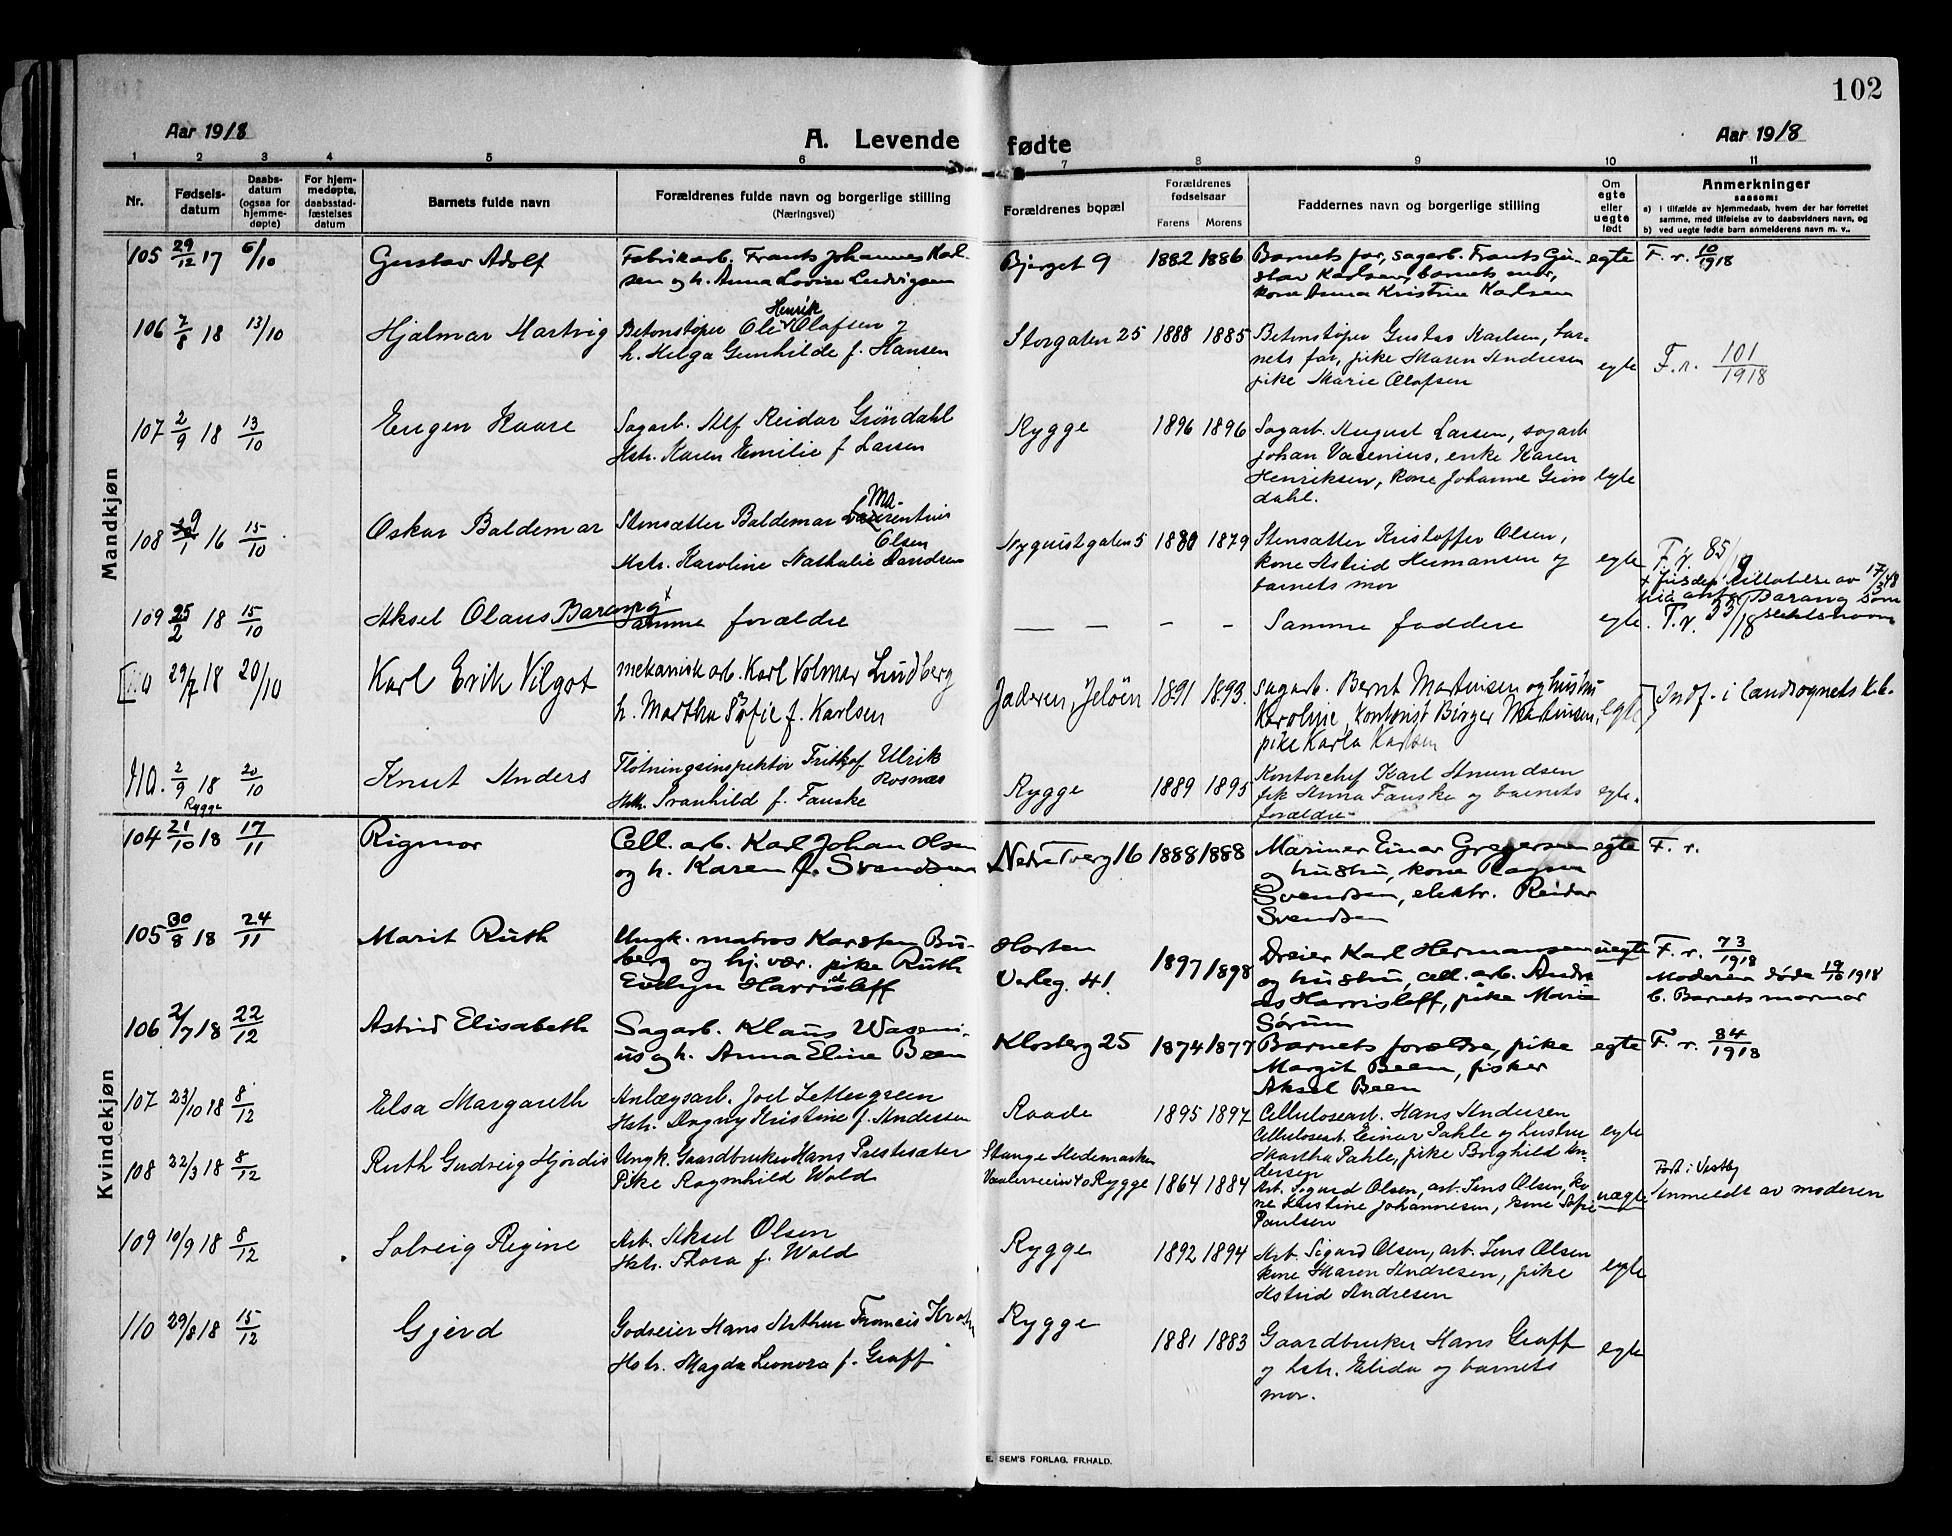 102
Aar 1918
A. Levende fødte
Aar 1918
1 2 3 4 5 6 7 8 9 10 11
Nr.
Fødsels-
datum
Daabs-
datum
(ogsaa for
hjemme-
døpte)
For hjem-
medøpte,
daabsstad-
fæstelses
datum
Barnets fulde navn
Forældrenes fulde navn og borgerlige stilling
(Næringsvei)
Forældrenes bopæl
Forældrenes
fødselsaar
Farens Morens
Faddernes navn og borgerlige stilling
Om
egte
eller
uegte
født
Anmerkninger
saasom:
a) I tilfælde av hjemmedaab, hvem der har forrettet
samme, med tilføielse av to daabsvidners navn, og
b) ved uegte fødte barn anmelderens navn m. v..
Mandkjøn
105 29/12 17 6/10 Gustav Adolf
Fabrikarb. Frants Johannes Karl-
sen og h. Anna Lovise Ludvigsen
Bjerget 9 1882 1886
Barnets far, sagarb. Frants Gu-
stav Karlsen, barnets mor,
kone Anna Kristine Karlsen
egte F. r. 10/1918
106 7/8 18 13/10 Hjalmar Hartvig
Henrik
Betonstøper Ole Olafsen og
h. Helga Gunhilde f. Hansen
Storgaten 25 1888 1885
Betonstøper Gustav Karlsen, bar-
nets far, pike Maren Andresen
pike Marie Olafsen
egte F. r. 101/1918
107 2/9 18 13/10 Eugen Kaare
Sagarb. Alf Reidar Grøndahl
Hstr. Karen Emilie f Larsen
Rygge 1896 1896
Sagarb. August Larsen, sagarb
Johan Vacenius, enke Karen
Henriksen, kone Johanne Grøn
dahl.
egte
108 9/1 16 15/10 Oskar Baldemar
Stensætter Baldemar Maurentius
Olsen
Hstr. Karoline Nathalie
Nyquistgaten 5 1880 1879
Stensætter Kristoffer Olsen,
kone Astrid Hermansen og
barnets mor
egte F. r. 85/18
109 25/2 18 15/10 Aksel Olaus Barang x
Samme forældre
— — — —
Samme faddere
egte F. r. 33/18
x Just.dep. tillatelse av 17/3 48
til å anta Barang som
slektsnavn
[110 29/7 18 20/10 Karl Erik Vilgot
mekanisk arb. Karl Volmar Lundberg
h. Martha Sofie f. Karlsen
Jaderen, Jeløen 1891 1893.
Sagarb. Bernt Martinsen og hustru
Karoline, kontorist Birger Martinsen,
pike Karla Karlsen
egte] Indf. i landsognets k.b.
110. 2/9 18 20/10 Knut Anders
Rygge
Fløtningsinspektør Fritkof Ulrik
Rosnæs
Hstr. Svanhild f. Fauske
Rygge 1889 1895
Kontorchef Karl Amundsen
frk Anna Fauske og barnets
forældre
egte.
Kvindekjøn
104 21/10 18 17/11 Rigmor
Cell. arb. Karl Johan Olsen
og h. Karen f. Svendsen
Nedre Tverg 16 1888 1888
Mariner Einar Gregersen
og hustru, kone Ragna
Svendsen, elektr. Reidar
Svendsen
egte F. r.
105 30/8 18 24/11 Marit Ruth
Ungk. matros Karsten Bu-
berg og hj. vær. pike Ruth
Evelyn Harrisleff
Horten
Verleg. 41. 1897 1898
Dreier Karl Hermansen
og hustru, cell. arb. Andre
as Harrisleff, pike Marie
Sørum
uegte F. r. 73/1918
Moderen døde 19/10 1918
b. Barnets mormor
106 2/7 18 22/12 Astrid Elisabeth
Sagarb. Klaus Waseni-
us og h. Anna Eline Been
Klosterg 25 1874 1877
Barnets forældre, pike
Margit Been, fisker
Aksel Been
egte F. r. 84/1918
107 23/10 18 8/12 Elsa Margareth
Anlægsarb. Joel Zettergreen
Hstr. Dagny Kristine f. Andersen
Raade 1895 1897
Celluloseearb. Hans Andersen
Cellulosearb. Einar Pahle og hustru
Martha Pahle, pike Borghild An-
dersen
egte
108 22/3 18 8/12 Ruth Gudveig Hjørdis
Ungk. Gaardbruker Hans Prestesæter
Pike Ragnhild Wold
Stange Hedemarken
Vaalerveien 40 Rygge 1864 1884
Arb. Sigurd Olsen, arb. Jens Olsen, ko
ne Kristine Johannesen, kone Sofie
Paulsen
uegte Født i Vestby
Anmeldt av moderen
109 10/9 18 8/12 Solveig Regine
Arb. Aksel Olsen
Hstr. Thora f. Wold
Rygge 1892 1894
Arb. Sigurd Olsen, arb. Jens Olsen
kone Maren Andresen, pike
Astrid Andresen
egte
110 29/8 18 15/12 Gjerd
Godseier Hans Arthur Francis Krohn
Hstr. Magda Leonora f. Graff
Rygge
1881 1883
Gaardbruker Hans Graff
og hstr. Elida og barnets
mor.
egte
E. SEM'S FORLAG. FR.HALD.